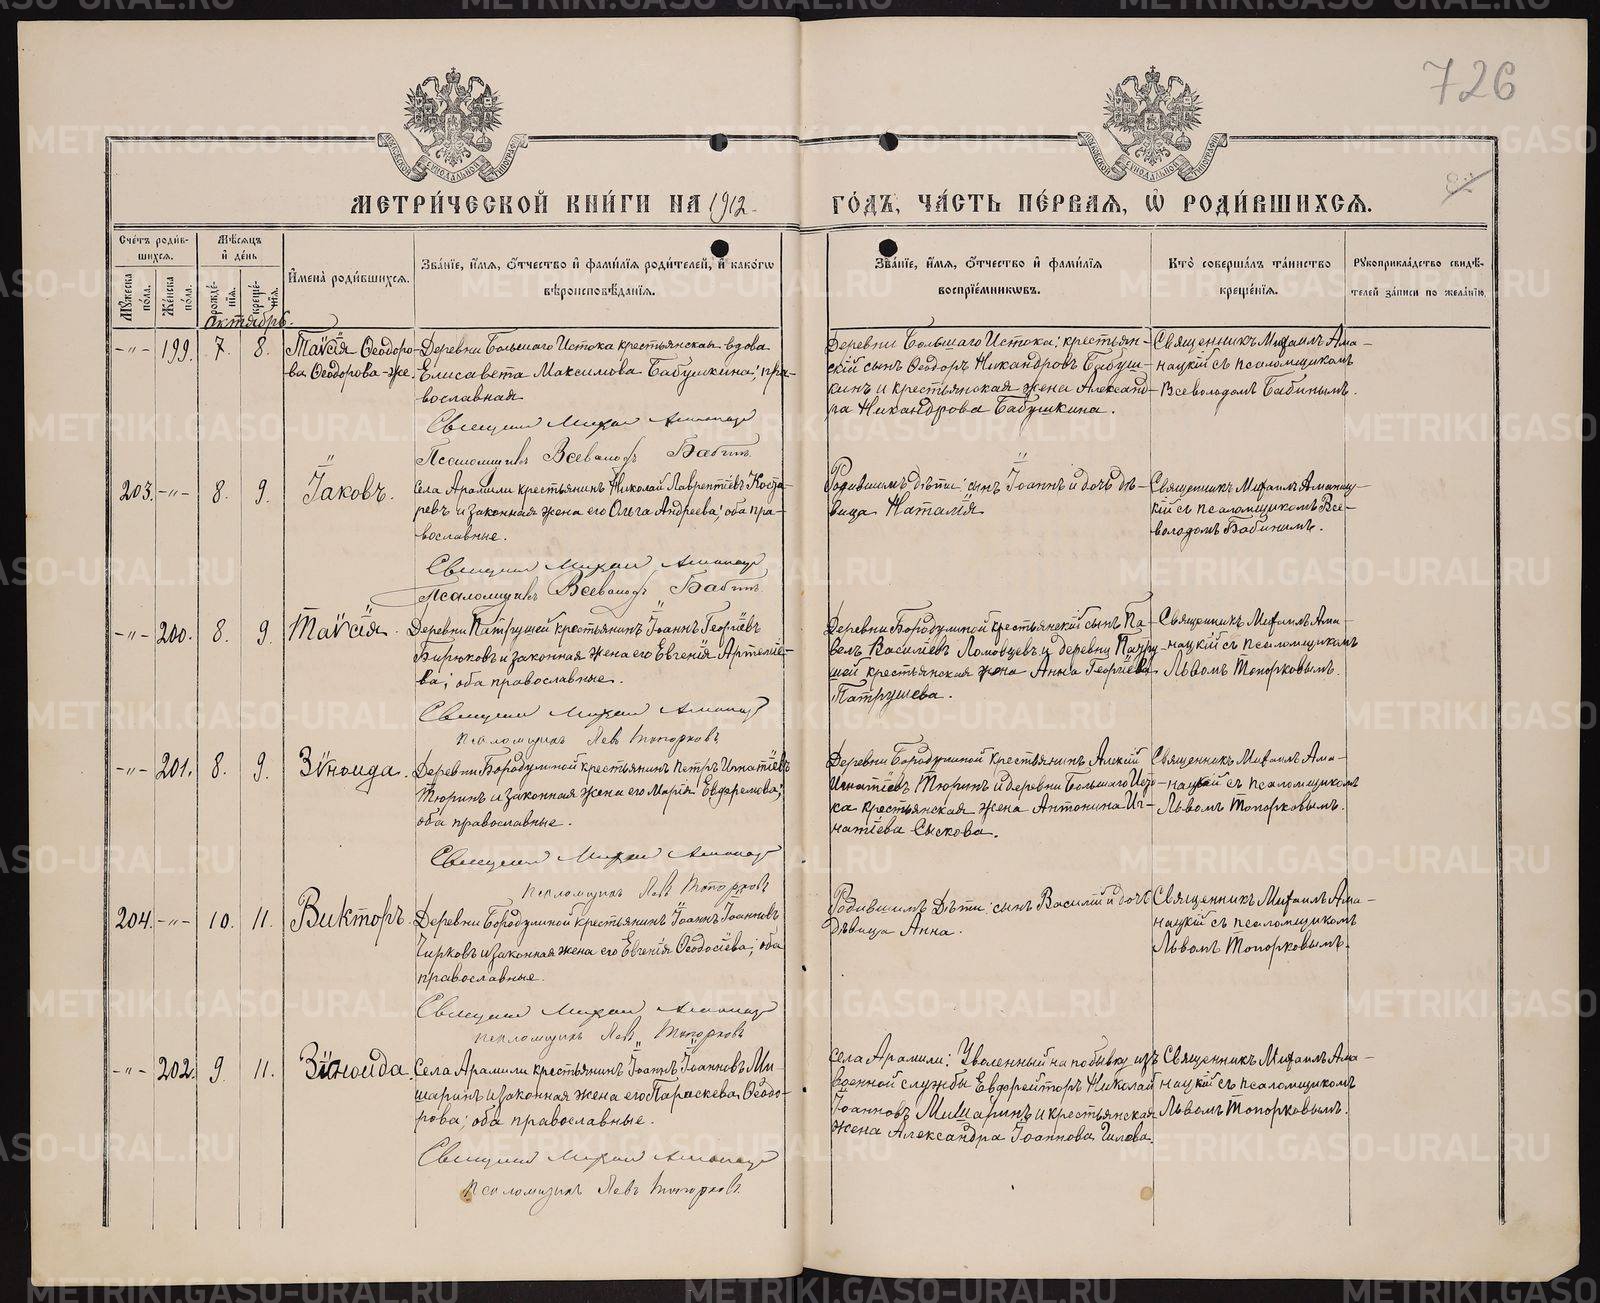 726
МЕТРИ́ЧЕСКОЙ КНИ́ГИ НА 1912 ГО́ДЪ, ЧА́СТЬ ПЕ́РВАЯ, Ѡ РОДИ́ВШИХСЯ.
Сче́тъ роди́в-
шихся.
Мѣ́сяцъ
и҆ де́нь
И҆мена̀ роди́вшихся.
Зва́нїе, и҆́мя, ѻ҆́тчество и҆ фами́лїя роди́телей, и҆ како́гѡ
вѣроисповѣ́данїя.
Зва́нїе, и҆́мя, ѻ҆́тчество и҆ фами́лїя
воспрїе́мникѡвъ.
Кто̀ соверша́лъ та́инство
креще́нїя.
Рꙋкоприкла́дство свидѣ́-
телей за́писи по жела́нїю.
Мꙋ́жеска по́ла.
Же́нска по́ла.
рожде́нїя.
креще́нїя.
Октябрь.
-"- 199. 7. 8. Таисія Ѳеодоро-
ва Ѳеодорова-же.
Деревни Большаго Истока крестьянская вдова
Елисавета Максимова Бабушкина; пра-
вославная
Священник Михаил Аманац
Псаломщикъ Всеволодъ Бабинъ.
Деревни Большаго Истока: крестьян-
скій сынъ Ѳеодоръ Никандровъ Бабуш-
кинъ и крестьянская жена Александ-
ра Никандрова Бабушкина.
Священникъ Михаилъ Ама-
нацкій съ псаломщикомъ
Всеволодомъ Бабинымъ.
203. -"- 8. 9. Іаковъ.
Села Арамили крестьянинъ Николай Лаврентіевъ Коста-
ревъ и законная жена его Ольга Андреева; оба пра-
вославные.
Священник Михаил Аманац
Псаломщикъ Всеволодъ Бабинъ.
Родившимъ дѣти: сынъ Іоаннъ и дочь дѣ-
вица Наталія
Священникъ Михаилъ Аманац-
кій съ псаломщикомъ Все-
володомъ Бабинымъ.
-"- 200. 8. 9. Таисія.
Деревни Патрушей крестьянинъ Іоаннъ Георгіевъ
Бирюковъ и законная жена его Евгенія Артеміе-
ва; оба православные.
Священник Михаил Аманац
псаломщикъ Левъ Топорковъ
Деревни Бородулиной крестьянскій сынъ Па-
велъ Василіевъ Ломовцевъ и деревни Патру-
шей крестьянская жена Анна Георгіева
Патрушева.
Священникъ Михаилъ Ама-
нацкій съ псаломщикомъ
Львомъ Топорковымъ.
-"- 201. 8. 9. Зиноида.
Деревни Бородулиной крестьянинъ Петръ Игнатіевъ
Тюринъ и законная жена его Марія Евфремова;
оба православные.
Священник Михаил Аманац
псаломщикъ Левъ Топорковъ
Деревни Бородулиной крестьянинъ Алексій
Игнатіевъ Тюринъ и деревни Большаго Исто-
ка крестьянская жена Антонина Иг-
натіева Сыскова.
Священникъ Михаилъ Ама-
нацкій съ псаломщикомъ
Львомъ Топорковымъ.
204. -"- 10. 11. Викторъ
Деревни Бородулиной крестьянинъ Іоаннъ Іоанновъ
Чирковъ и законная жена его Евгенія Ѳеодосіева; оба
православные.
Священник Михаил Аманац
псаломщикъ Левъ Топорковъ
Родившимъ Дѣти: сынъ Василій и дочь
Дѣвица Анна.
Священникъ Михаилъ Ама-
нацкій съ псаломщикомъ
Львомъ Топорковымъ.
-"- 202. 9. 11. Зиноида.
Села Арамили крестьянинъ Іоаннъ Іоанновъ Ми-
шаринъ и законная жена его Параскева Ѳеодо-
рова; оба православные.
Священник Михаил Аманац
псаломщикъ Левъ Топорковъ.
Села Арамили: Уволенный на побывку изъ
военной службы Евфрейторъ Николай
Іоанновъ Мишаринъ и крестьянская
жена Александра Іоаннова Чилова.
Священникъ Михаилъ Ама-
нацкій съ псаломщикомъ
Львомъ Топорковымъ.
METRIKI.GASO-URAL.RU